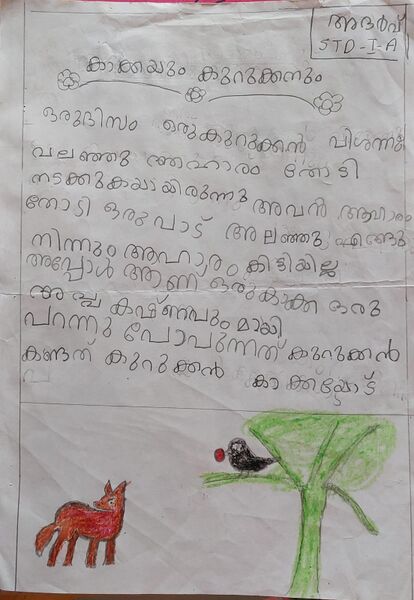 അദർവ്
STD-I-A
കാക്കയും കുറുക്കനും
ഒരുദിസം ഒരുകുറുക്കൻ വിശന്നു
വലഞ്ഞു ആഹാരം തേടി
നടക്കുകയായിരുന്നു അവൻ ആഹാരം
തേടി ഒരുപാട് അലഞ്ഞു എങ്ങു
നിന്നും അഹാരം കിട്ടിയില്ല
അപ്പോൾ ആണ് ഒരുകാക്ക ഒരു
അപ്പ കഷ്ണവും മായി
പറന്നു പോപുന്നത് കുറുക്കൻ
കണ്ടത് കുറുക്കൻ കാക്കയോട്